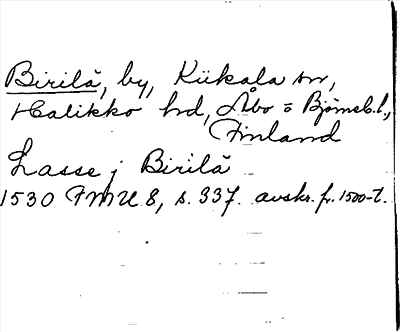 Birilä, by, Kiikala sn,
Halikko hd, Åbo o Björneb. l.,
Finland
Lasse j Birilä
1530 FMU 8, s. 337. avskr. fr. 1500-t.